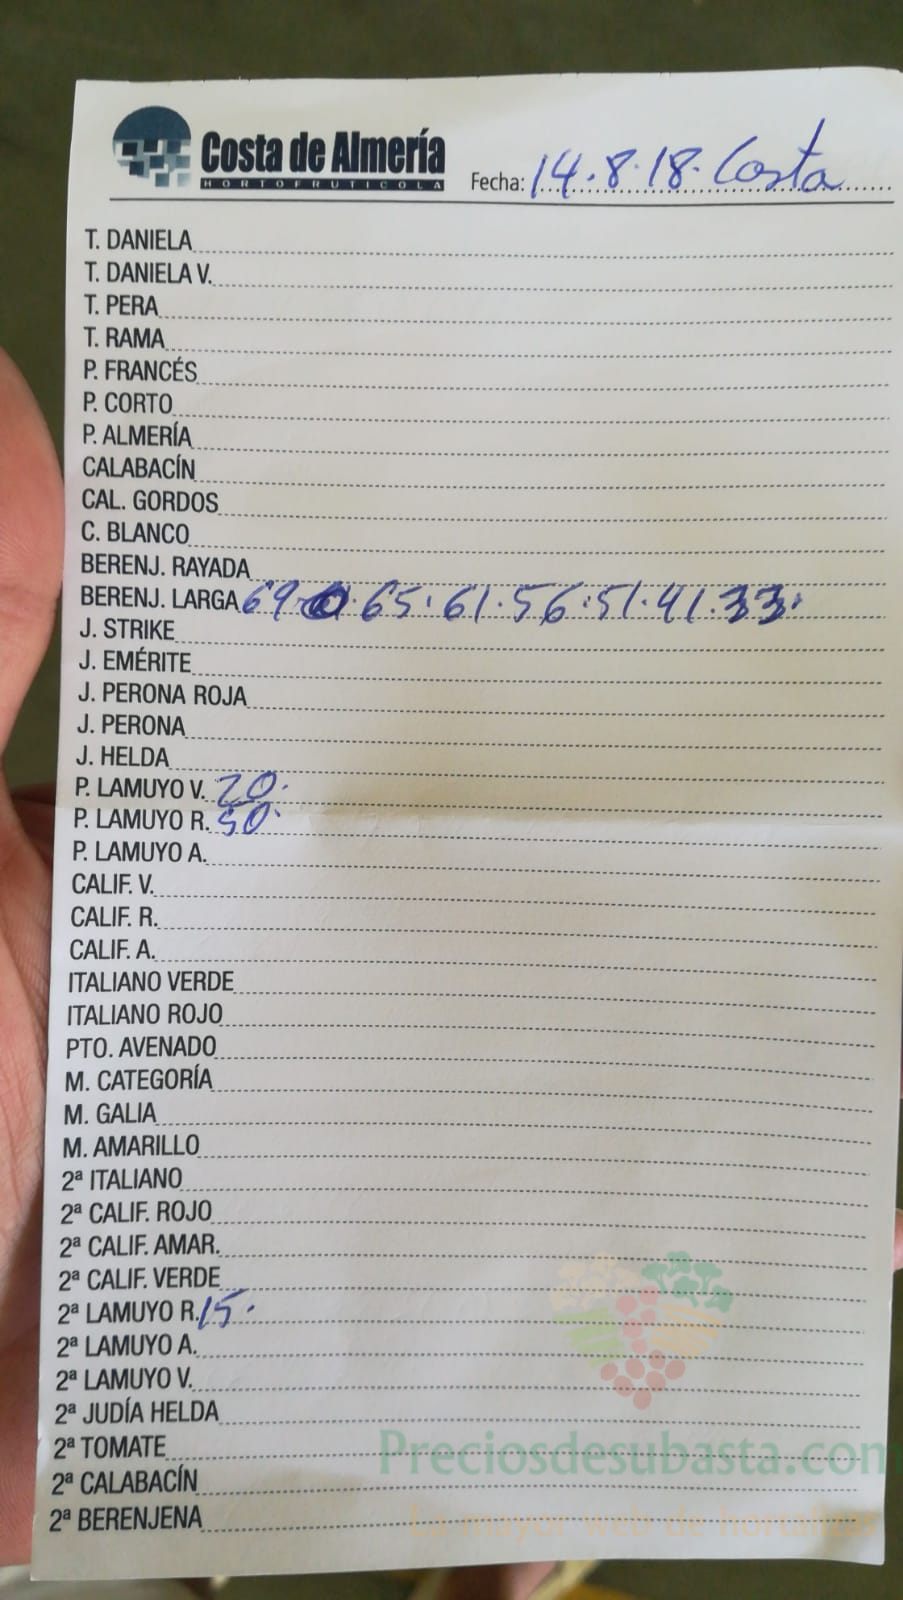 Costa de Almería
HORTOFRUTICOLA
Fecha: 14.8.18. Costa
T. DANIELA
T. DANIELA V.
T. PERA
T. RAMA
P. FRANCÉS
P. CORTO
P. ALMERÍA
CALABACÍN
CAL. GORDOS
C. BLANCO
BERENJ. RAYADA
BERENJ. LARGA 69. 65. 61. 56. 51. 41. 33.
J. STRIKE
J. EMÉRITE
J. PERONA ROJA
J. PERONA
J. HELDA
P. LAMUYO V. 20.
P. LAMUYO R. 50.
P. LAMUYO A.
CALIF. V.
CALIF. R.
CALIF. A.
ITALIANO VERDE
ITALIANO ROJO
PTO. AVENADO
M. CATEGORÍA
M. GALIA
M. AMARILLO
2ª ITALIANO
2ª CALIF. ROJO
2ª CALIF. AMAR.
2ª CALIF. VERDE
2ª LAMUYO R. 15.
2ª LAMUYO A.
2ª LAMUYO V.
2ª JUDÍA HELDA
2ª TOMATE
Preciosdesubasta.com
2ª CALABACÍN
2ª BERENJENA
La mayor web de hortalizas